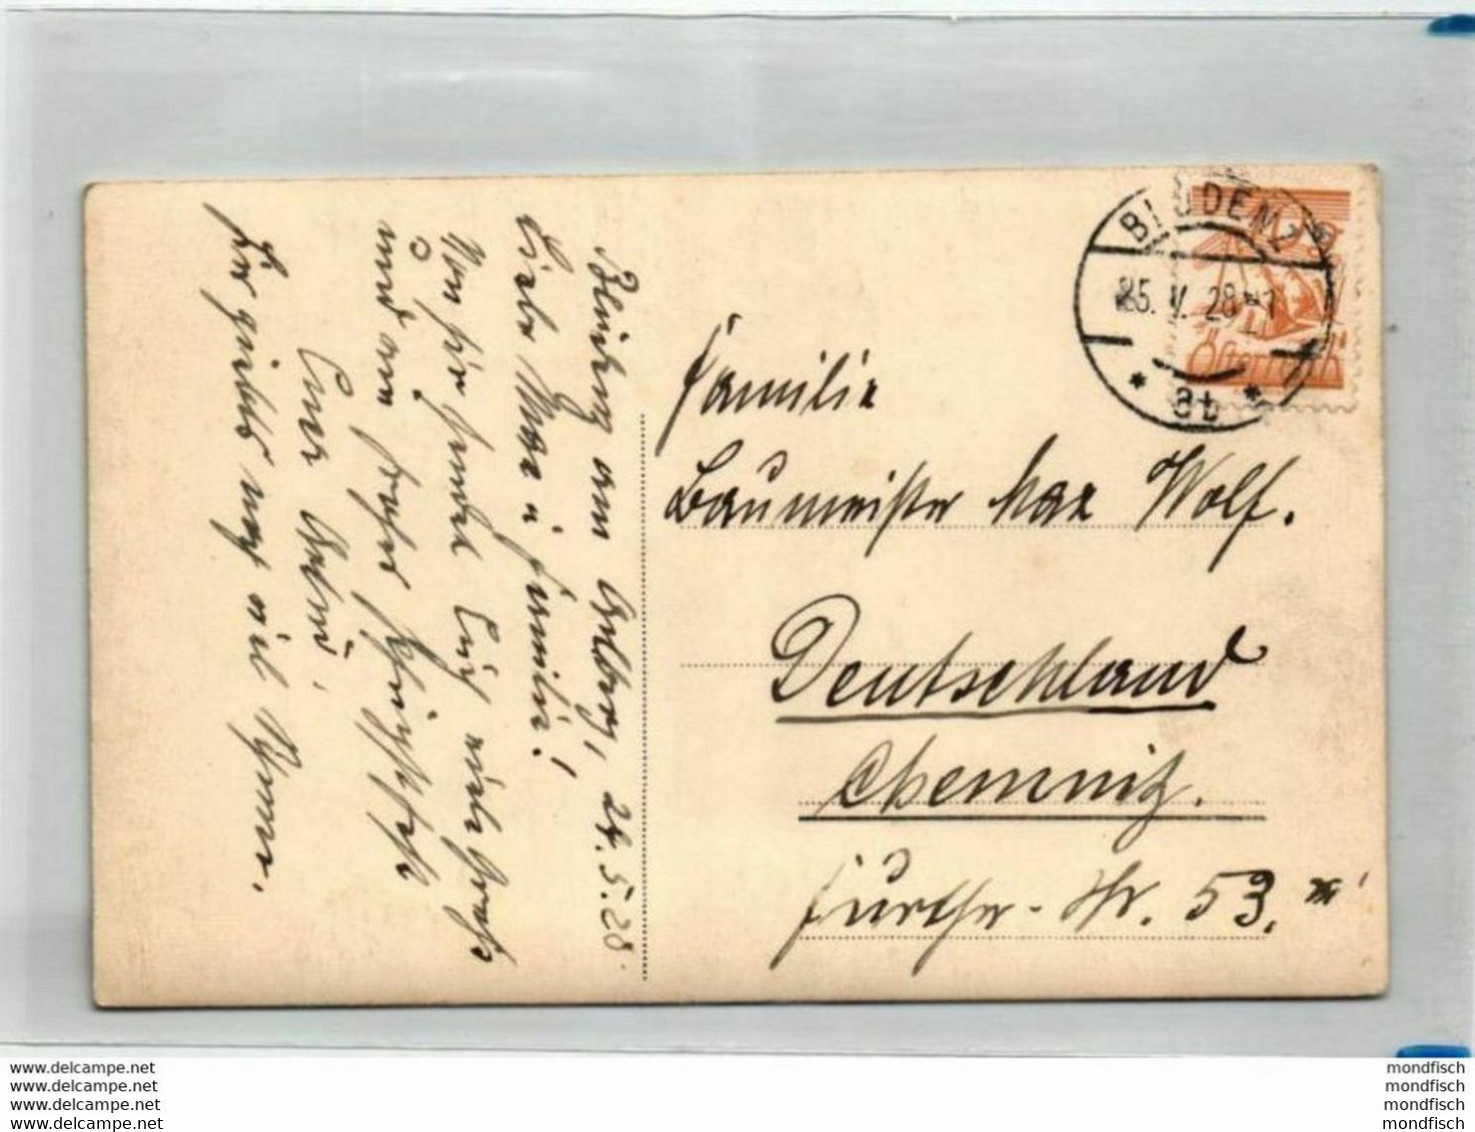 Bludenz am Arlberg, 24.5.28.
Liebe Max u. Familie!
Von hier sendet Euch viele herzl.
und ein frohes Pfingstfest
Eure
hier gibts noch viel
BLUDENZ
25. V. 28
*8b*
Österreich
Familie
Baumeister Max Wolf.
Deutschland
Chemnitz.
Further-Str. 53.
www.delcampe.net
www.delcampe.net
www.delcampe.net
www.delcampe.net
mondfisch
mondfisch
mondfisch
mondfisch